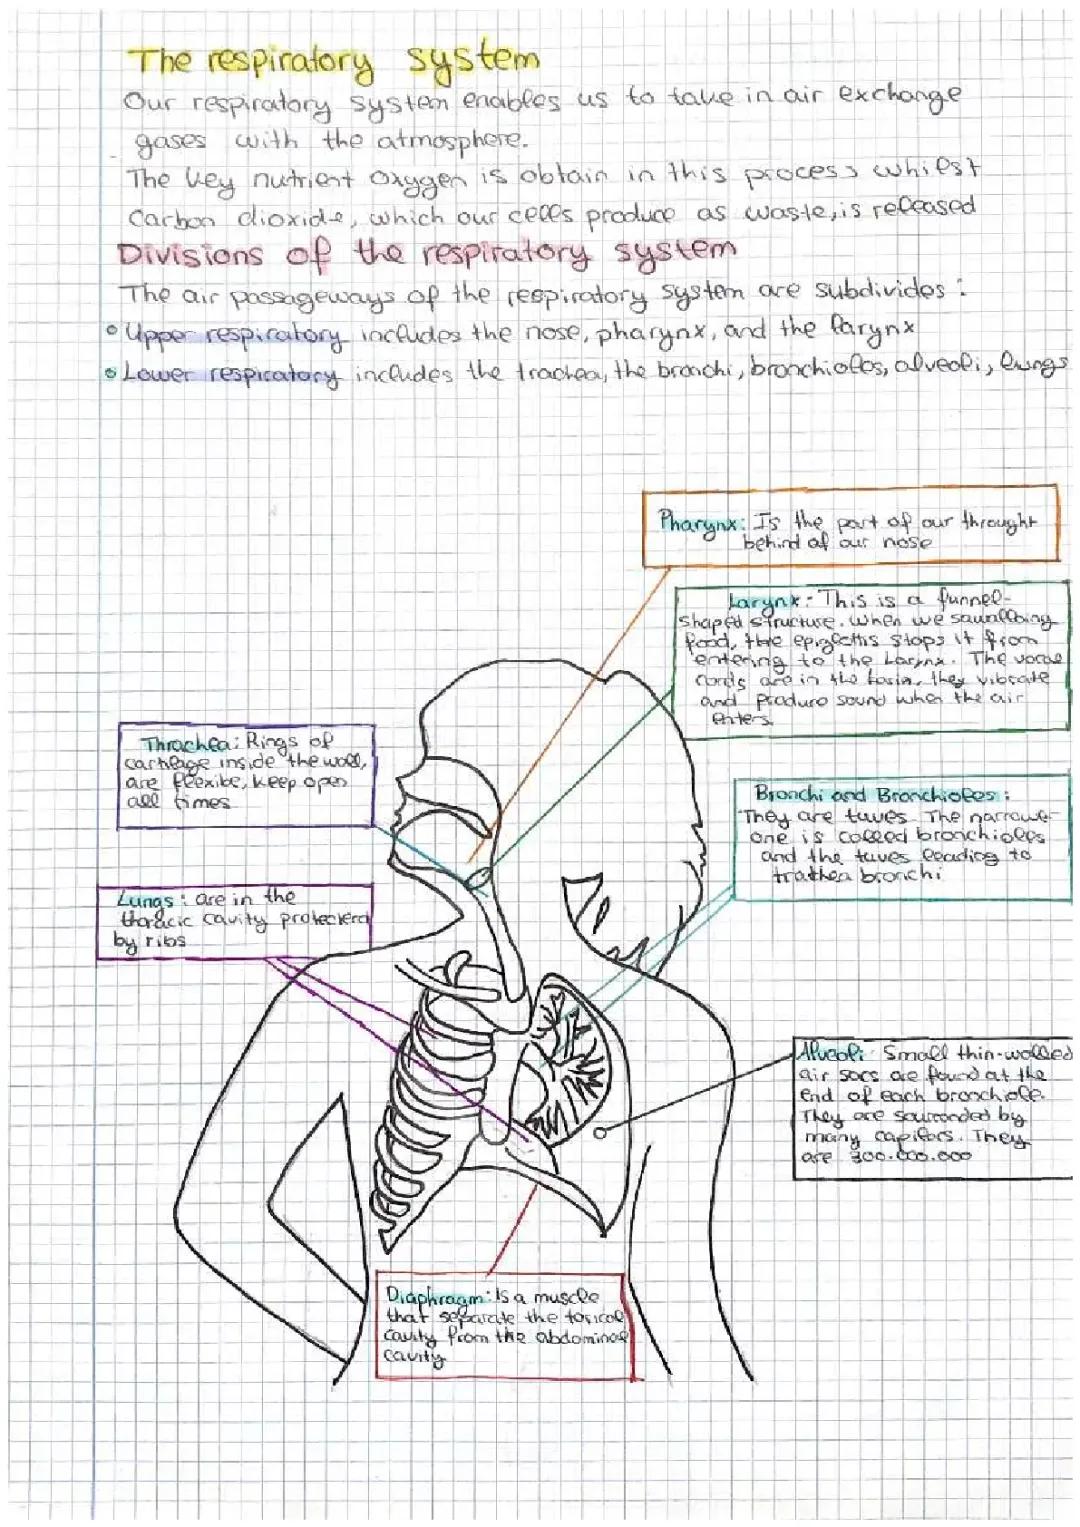 The respiratory system
Our respiratory system enables us to take in air exchange
gases with the atmosphere.
The key nutrient oxygen is obtain in this process whilst
Carbon dioxide, which our cells produce as waste, is released
Divisions of the respiratory system
The air passageways of the respiratory system are subdivides :
Uppe respiratory includes the nose, pharynx, and the larynx
Lower respiratory includes the trachea, the bronchi, bronchioles, alveoli, lungs
Pharynx: Is the part of our throught
behind of our nose
Larynx: This is a funnel-
shaped structure. When we
food, the epiglottis stops it from
entering to the Larynx. The vocal
cords are in the they vibrate
and produre sound when the air
enters.
Thrachea: Rings of
cartleage inside the wall,
are flexibe, keep open
all times
Bronchi and Bronchioles :
They are tuves. The narrowe
one is called bronchioles
and the tuves leading to
trathea bronchi
Lungs : are in the
thoracic cavity protecterd
by ribs
Alveoli: Small thin-walled
air sacs are found at the
end of each bronchiole.
They are sourronded by
many capilars. They
are 300.000.000
Diaphragm: Is a muscle
that separate the toricol
cavity from the abdominal
cavity